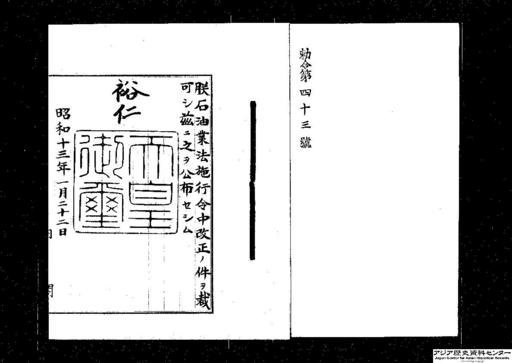 勅令第四十三號
朕石油業法施行令中改正ノ件ヲ裁
可シ茲ニ之ヲ公布セシム
裕仁
天皇
御璽
昭和十三年一月二十二日
内閣
アジア歴史資料センター
Japan Center for Asian Historical Records